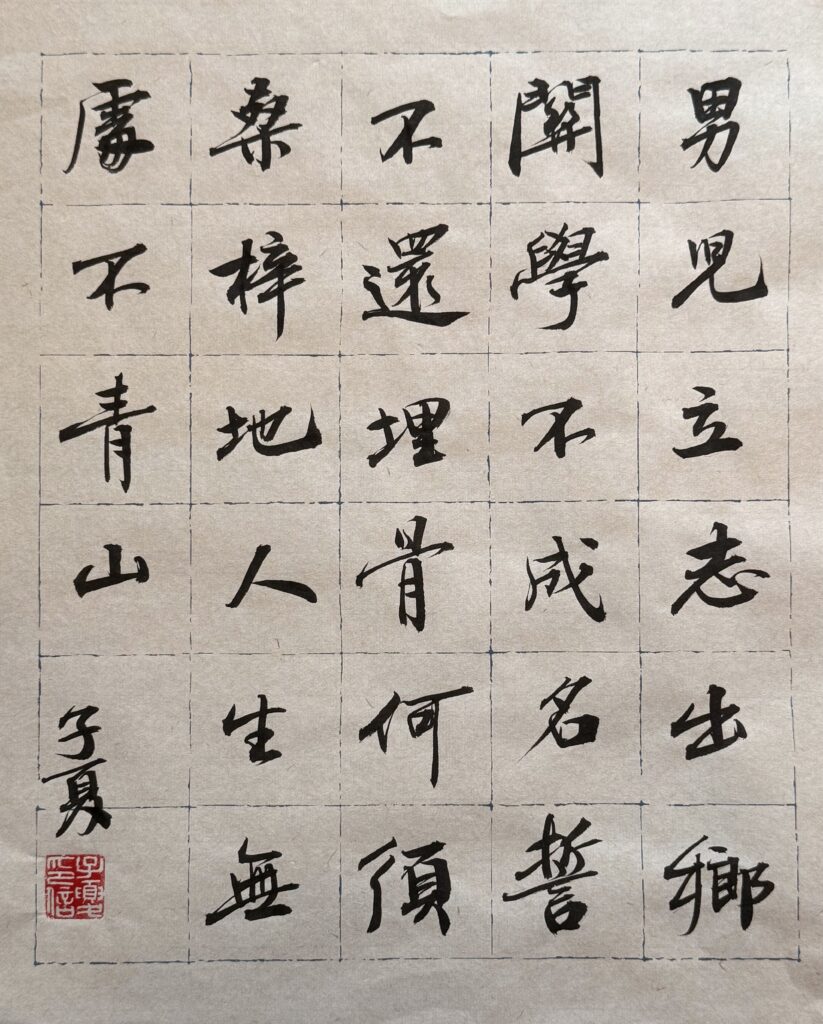 男児立志出鄉
關學不成名誓
不還埋骨何須
桑梓地人生無
處不青山
子夏
子夏印信